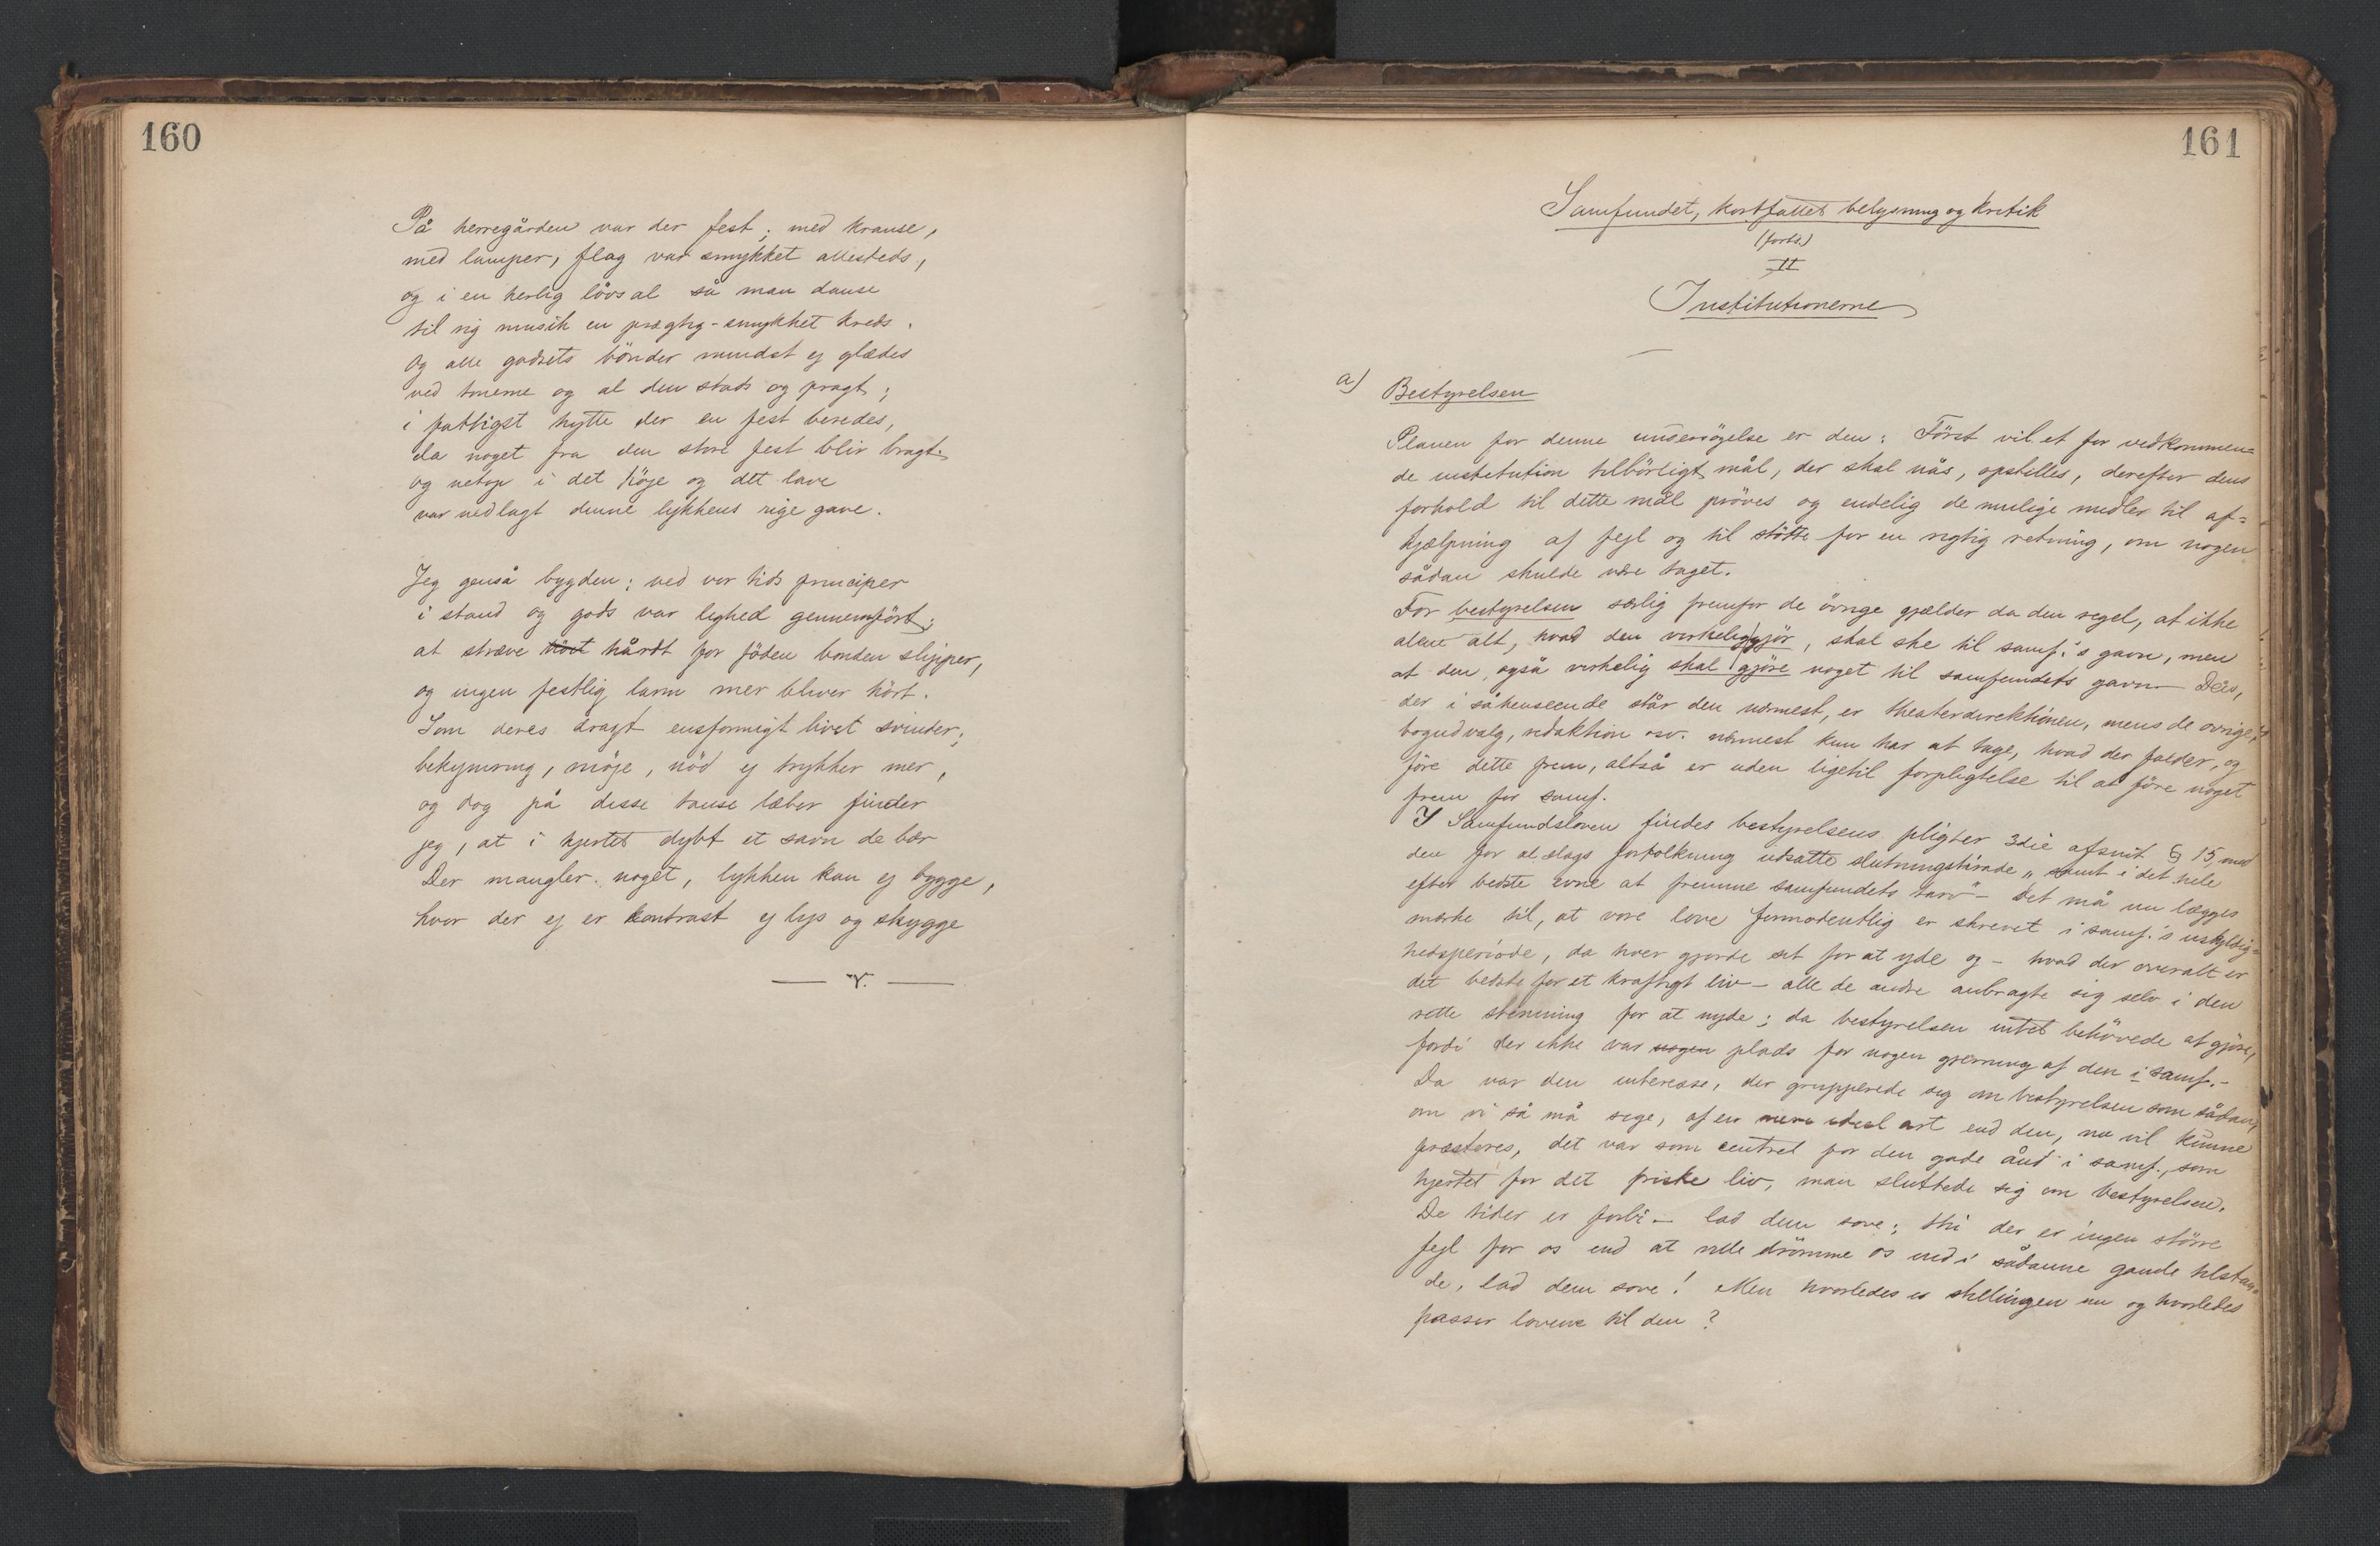 160
På herregården var der fest; med kranse,
med lamper, flag var smykket allesteds,
og i en herlig lövsal så man danse
til rig musik en prægtig-smykket kreds.
Og alle godsets bönder mindst ej glædes
ved tonerne og al den stads og pragt;
i fattigst hytte der en fest beredes,
da noget fra den store fest blir bragt.
og netop i det höje og det lave
var nedlagt denne lykkens rige gave.
Jeg genså bygden; ved vor tids principer
i stand og gods var lighed gennemfört;
at stræve hårdt for föden bonden slipper,
og ingen festlig larm mer bliver hört.
Som deres dragt ensformigt livet svinder;
bekymring, möje, nöd ej trykker mer,
og dog på disse tause læber finder
jeg, at i hjertet dybt et savn de bær
Der mangler noget, lykken kan ej bygge,
hvor der ej er kontrast ej lys og skygge
— r. —
161
Samfundet, kortfattet belysning og kritik
(forts.)
II
Institutionerne
a) Bestyrelsen
Planen for denne undersögelse er den: Först vil et for vedkommen=
de institution tilbörligt mål, der skal nås, opstilles, derefter dens
forhold til dette mål pröves og endelig de mulige midler til af=
hjælpning af fejl og til stötte for en rigtig retning, om nogen
sådan skulde være taget.
For bestyrelsen særlig fremfor de övrige gjælder da den regel, at ikke
alene alt, hvad den virkelig gjör, skal ske til samf.'s gavn, men
at den også virkelig skal gjöre noget til samfundets gavn — Den,
der i såhenseende står den nærmest, er theaterdirektionen, mens de övrige,
bogudvalg, redaktion osv. nærmest kun har at tage, hvad der falder, og
före dette frem, altså er uden ligetil forpligtelse til at före noget
frem for samf.
I Samfundsloven findes bestyrelsens pligter 3die afsnit § 15 med
den for al slags fortolkning udsatte slutningstirade „samt i det hele
efter bedste evne at fremme samfundets tarv" — Det må nu lægges
mærke til, at vore love formodentlig er skrevet i samf.'s uskyldig=
hedsperiode, da hver gjorde sit for at yde og — hvad der overalt er
det bedste for et kraftigt liv — alle de andre anbragte sig selv i den
rette stemning for at nyde; da bestyrelsen intet behövede at gjöre,
fordi der ikke var nogen plads for nogen gjerning af den i samf. –
Da var den interesse, der grupperede sig om bestyrelsen som sådan,
om vi så må sige, af en mere ideel art end den, nu vil kunne
præsteres, det var som centret for den gode ånd i samf., som
hjertet for det friske liv, man sluttede sig om bestyrelsen.
De tider er forbi — lad dem sove; thi der er ingen större
fejl for os end at ville drömme os ind i sådanne gamle tilstan=
de, lad dem sove! Men hvorledes er stillingen nu og hvorledes
passer lovene til den?